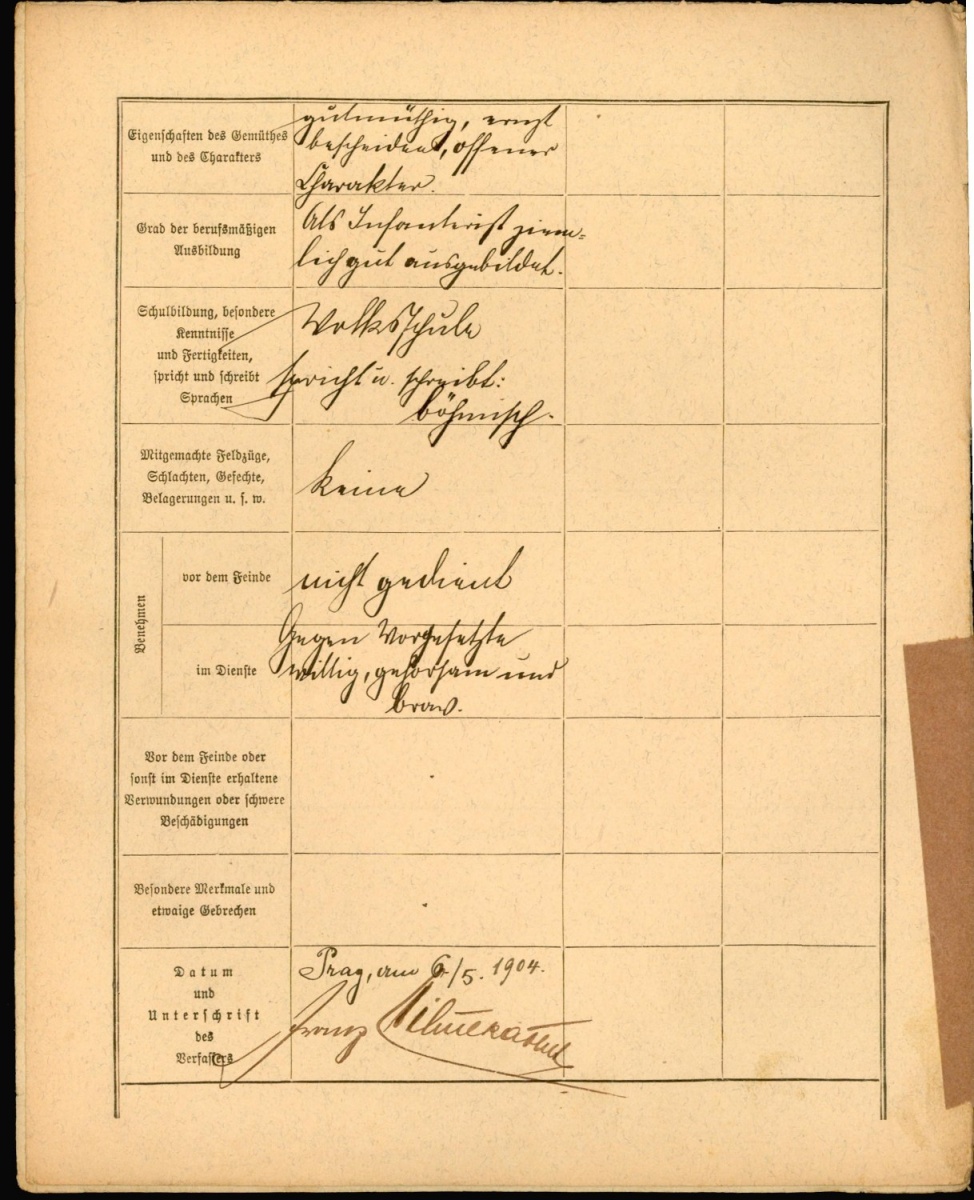 Eigenschaften des Gemüthes
und des Charakters
gutmüthig, ernst
bescheiden, offener
Charakter.
Grad der berufsmäßigen
Ausbildung
Als Infanterist ziem-
lich gut ausgebildet.
Schulbildung, besondere
Kenntnisse
und Fertigkeiten,
spricht und schreibt
Sprachen
Volksschule
spricht u. schreibt:
böhmisch.
Mitgemachte Feldzüge,
Schlachten, Gefechte,
Belagerungen u. s. w.
keine
Benehmen
vor dem Feinde
nicht gedient
im Dienste
Gegen Vorgesetzte
willig, gehorsam und
brav.
Vor dem Feinde oder
sonst im Dienste erhaltene
Verwundungen oder schwere
Beschädigungen
Besondere Merkmale und
etwaige Gebrechen
Datum
und
Unterschrift
des
Verfassers
Prag, am 6/5. 1904.
Franz